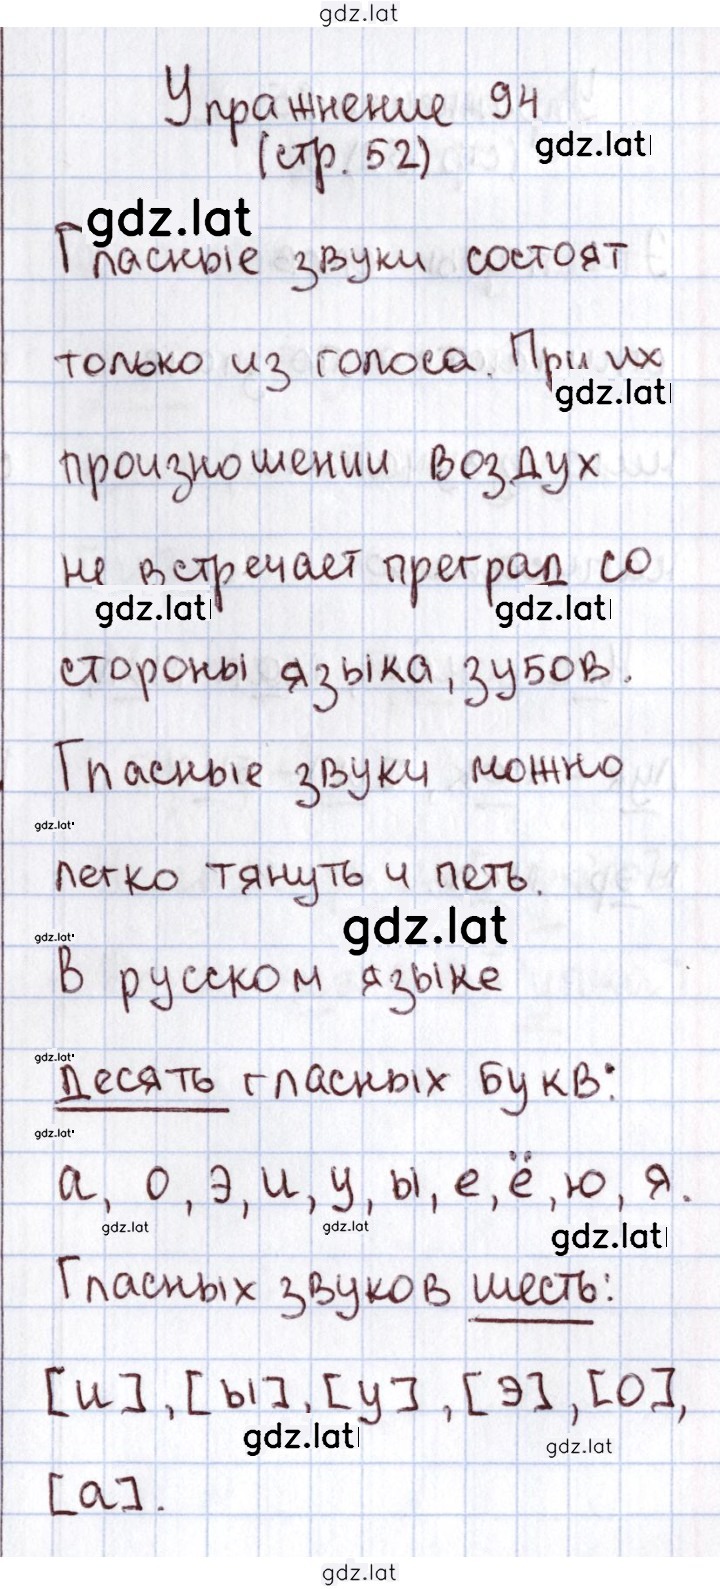 gdz.lat
Упражнение 94
(стр. 52)
gdz.lat
gdz.lat
Гласные звуки состоят
только из голоса. При их
gdz.lat
произношении воздух
не встречает преград со
gdz.lat gdz.lat
стороны языка, зубов.
Гласные звуки можно
gdz.lat
легко тянуть и петь.
gdz.lat
gdz.lat
В русском языке
gdz.lat
десять гласных букв:
gdz.lat
а, о, э, и, у, ы, е, ё, ю, я.
gdz.lat gdz.lat gdz.lat
Гласных звуков шесть:
[и], [ы], [у], [э], [о],
gdz.lat gdz.lat
[а].
gdz.lat